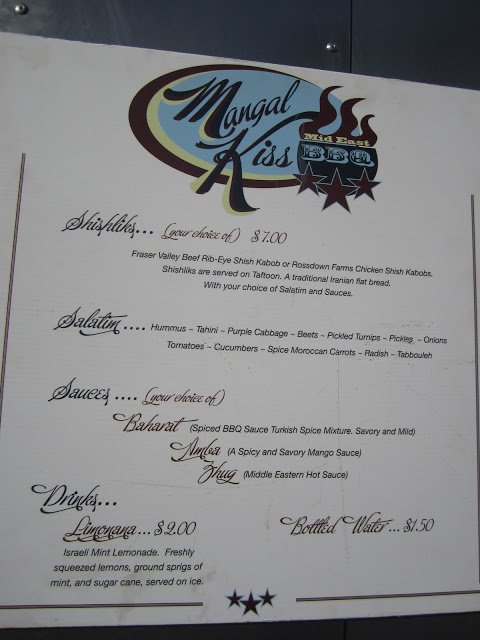 Mangal
Kiss
Mid East
BBQ
Shishliks... (your choice of) $7.00
Fraser Valley Beef Rib-Eye Shish Kabob or Rossdown Farms Chicken Shish Kabobs.
Shishliks are served on Taftoon. A traditional Iranian flat bread.
With your choice of Salatim and Sauces.
Salatim.... Hummus ~ Tahini ~ Purple Cabbage ~ Beets ~ Pickled Turnips ~ Pickles ~ Onions
Tomatoes ~ Cucumbers ~ Spice Moroccan Carrots ~ Radish ~ Tabbouleh
Sauces.... (your choice of)
Baharat (Spiced BBQ Sauce Turkish Spice Mixture. Savory and Mild)
Amba (A Spicy and Savory Mango Sauce)
Zhug (Middle Eastern Hot Sauce)
Drinks...
Limonana... $2.00
Israeli Mint Lemonade. Freshly
squeezed lemons, ground sprigs of
mint, and sugar cane, served on ice.
Bottled Water... $1.50